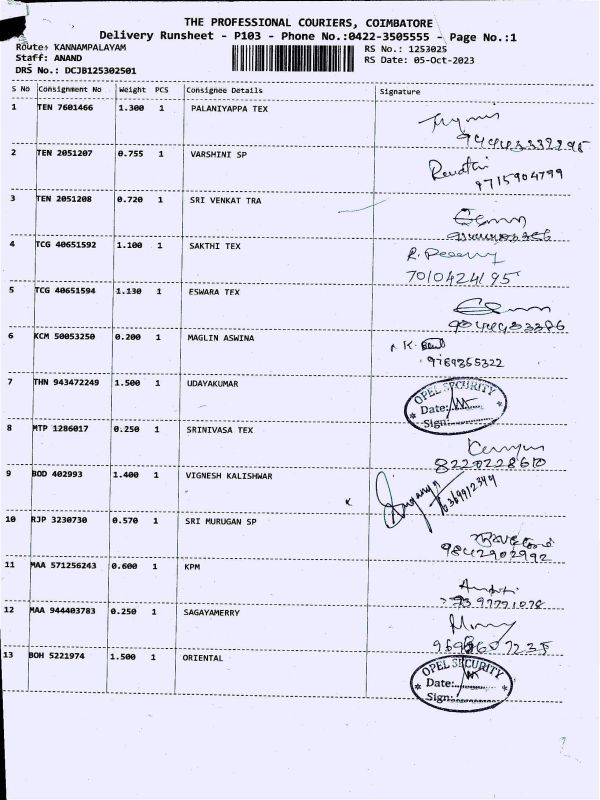 THE PROFESSIONAL COURIERS, COIMBATORE
Delivery Runsheet - P103 - Phone No.:0422-3505555 - Page No.:1
Route: KANNAMPALAYAM
RS No.: 1253025
Staff: ANAND
RS Date: 05-Oct-2023
DRS No.: DCJB125302501
S No Consignment No Weight PCS Consignee Details Signature
1 TEN 7601466 1.300 1 PALANIYAPPA TEX
2 TEN 2051207 0.755 1 VARSHINI SP Revathi
9715904799
3 TEN 2051208 0.720 1 SRI VENKAT TRA
4 TCG 40651592 1.100 1 SAKTHI TEX
7010424195
5 TCG 40651594 1.130 1 ESWARA TEX
6 KCM 50053250 0.200 1 MAGLIN ASWINA
9789365322
7 THN 943472249 1.500 1 UDAYAKUMAR OPEL SECURITY
Date:
Sign:
8 MTP 1286017 0.250 1 SRINIVASA TEX
8220228610
9 BOD 402993 1.400 1 VIGNESH KALISHWAR
10 RJP 3230730 0.570 1 SRI MURUGAN SP
9842902992
11 MAA 571256243 0.600 1 KPM
12 MAA 944403783 0.250 1 SAGAYAMERRY
13 BOH 5221974 1.500 1 ORIENTAL OPEL SECURITY
Date:
Sign: